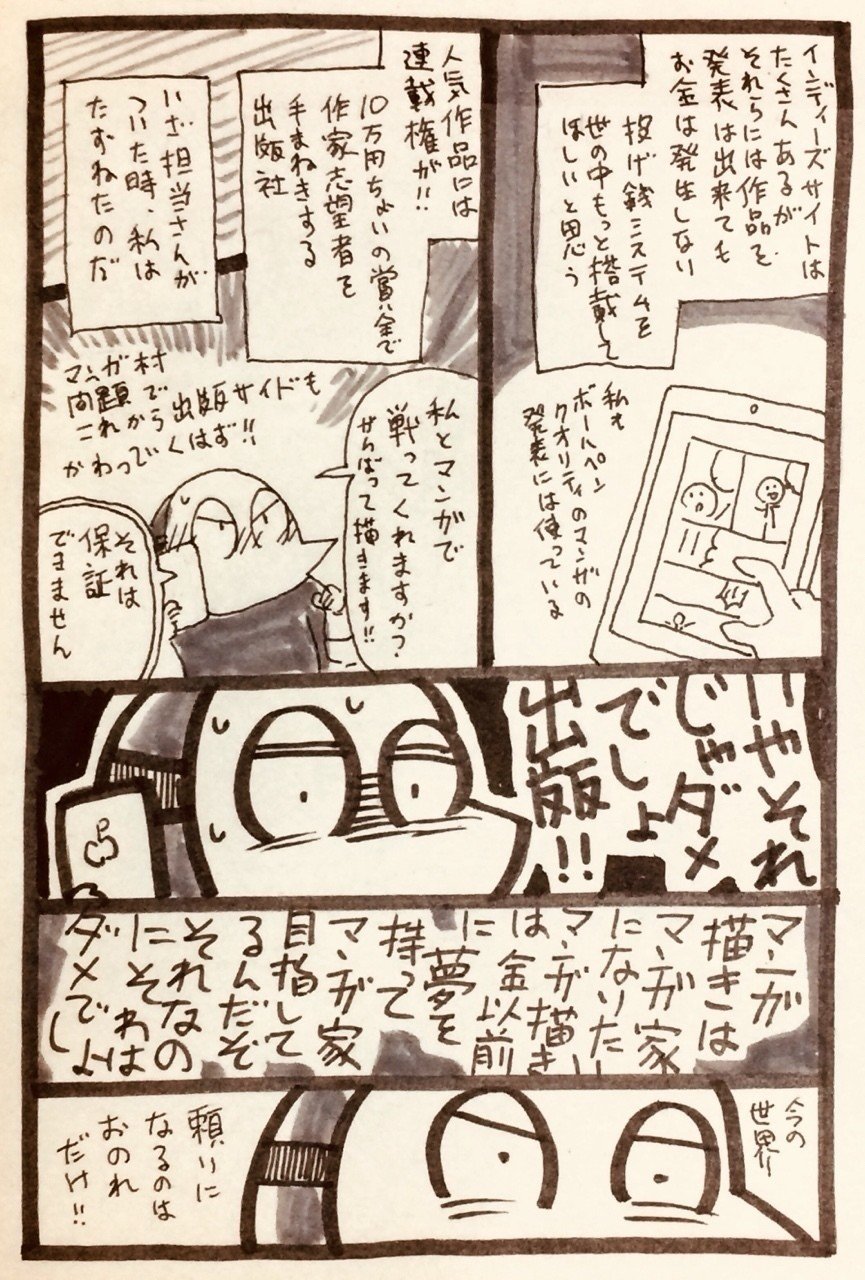 インディーズサイトは
たくさんあるが
それらには作品を
発表は出来ても
お金は発生しない
投げ銭システムを
世の中もっと搭載して
ほしいと思う
私も
ボールペン
クオリティのマンガの
発表には使っている
人気作品には
連載権が!!
10万円ちょいの賞金で
作家志望者を
手まねきする
出版社
いざ担当さんが
ついた時、私は
たずねたのだ
マンガ村
問題で
これから出版サイドも
かわっていくはず!!
私とマンガで
戦ってくれますか?
がんばって描きます!!
それは
保証
できません
いやそれ
じゃダメ
でしょ
出版!!
マンガ
描きは
マンガ家
になりたい
マンガ描き
は金以前
に夢を
持って
マンガ家
目指して
るんだぞ
それなの
にそれは
ダメでしょ
今の
世界
頼りに
なるのは
おのれ
だけ!!